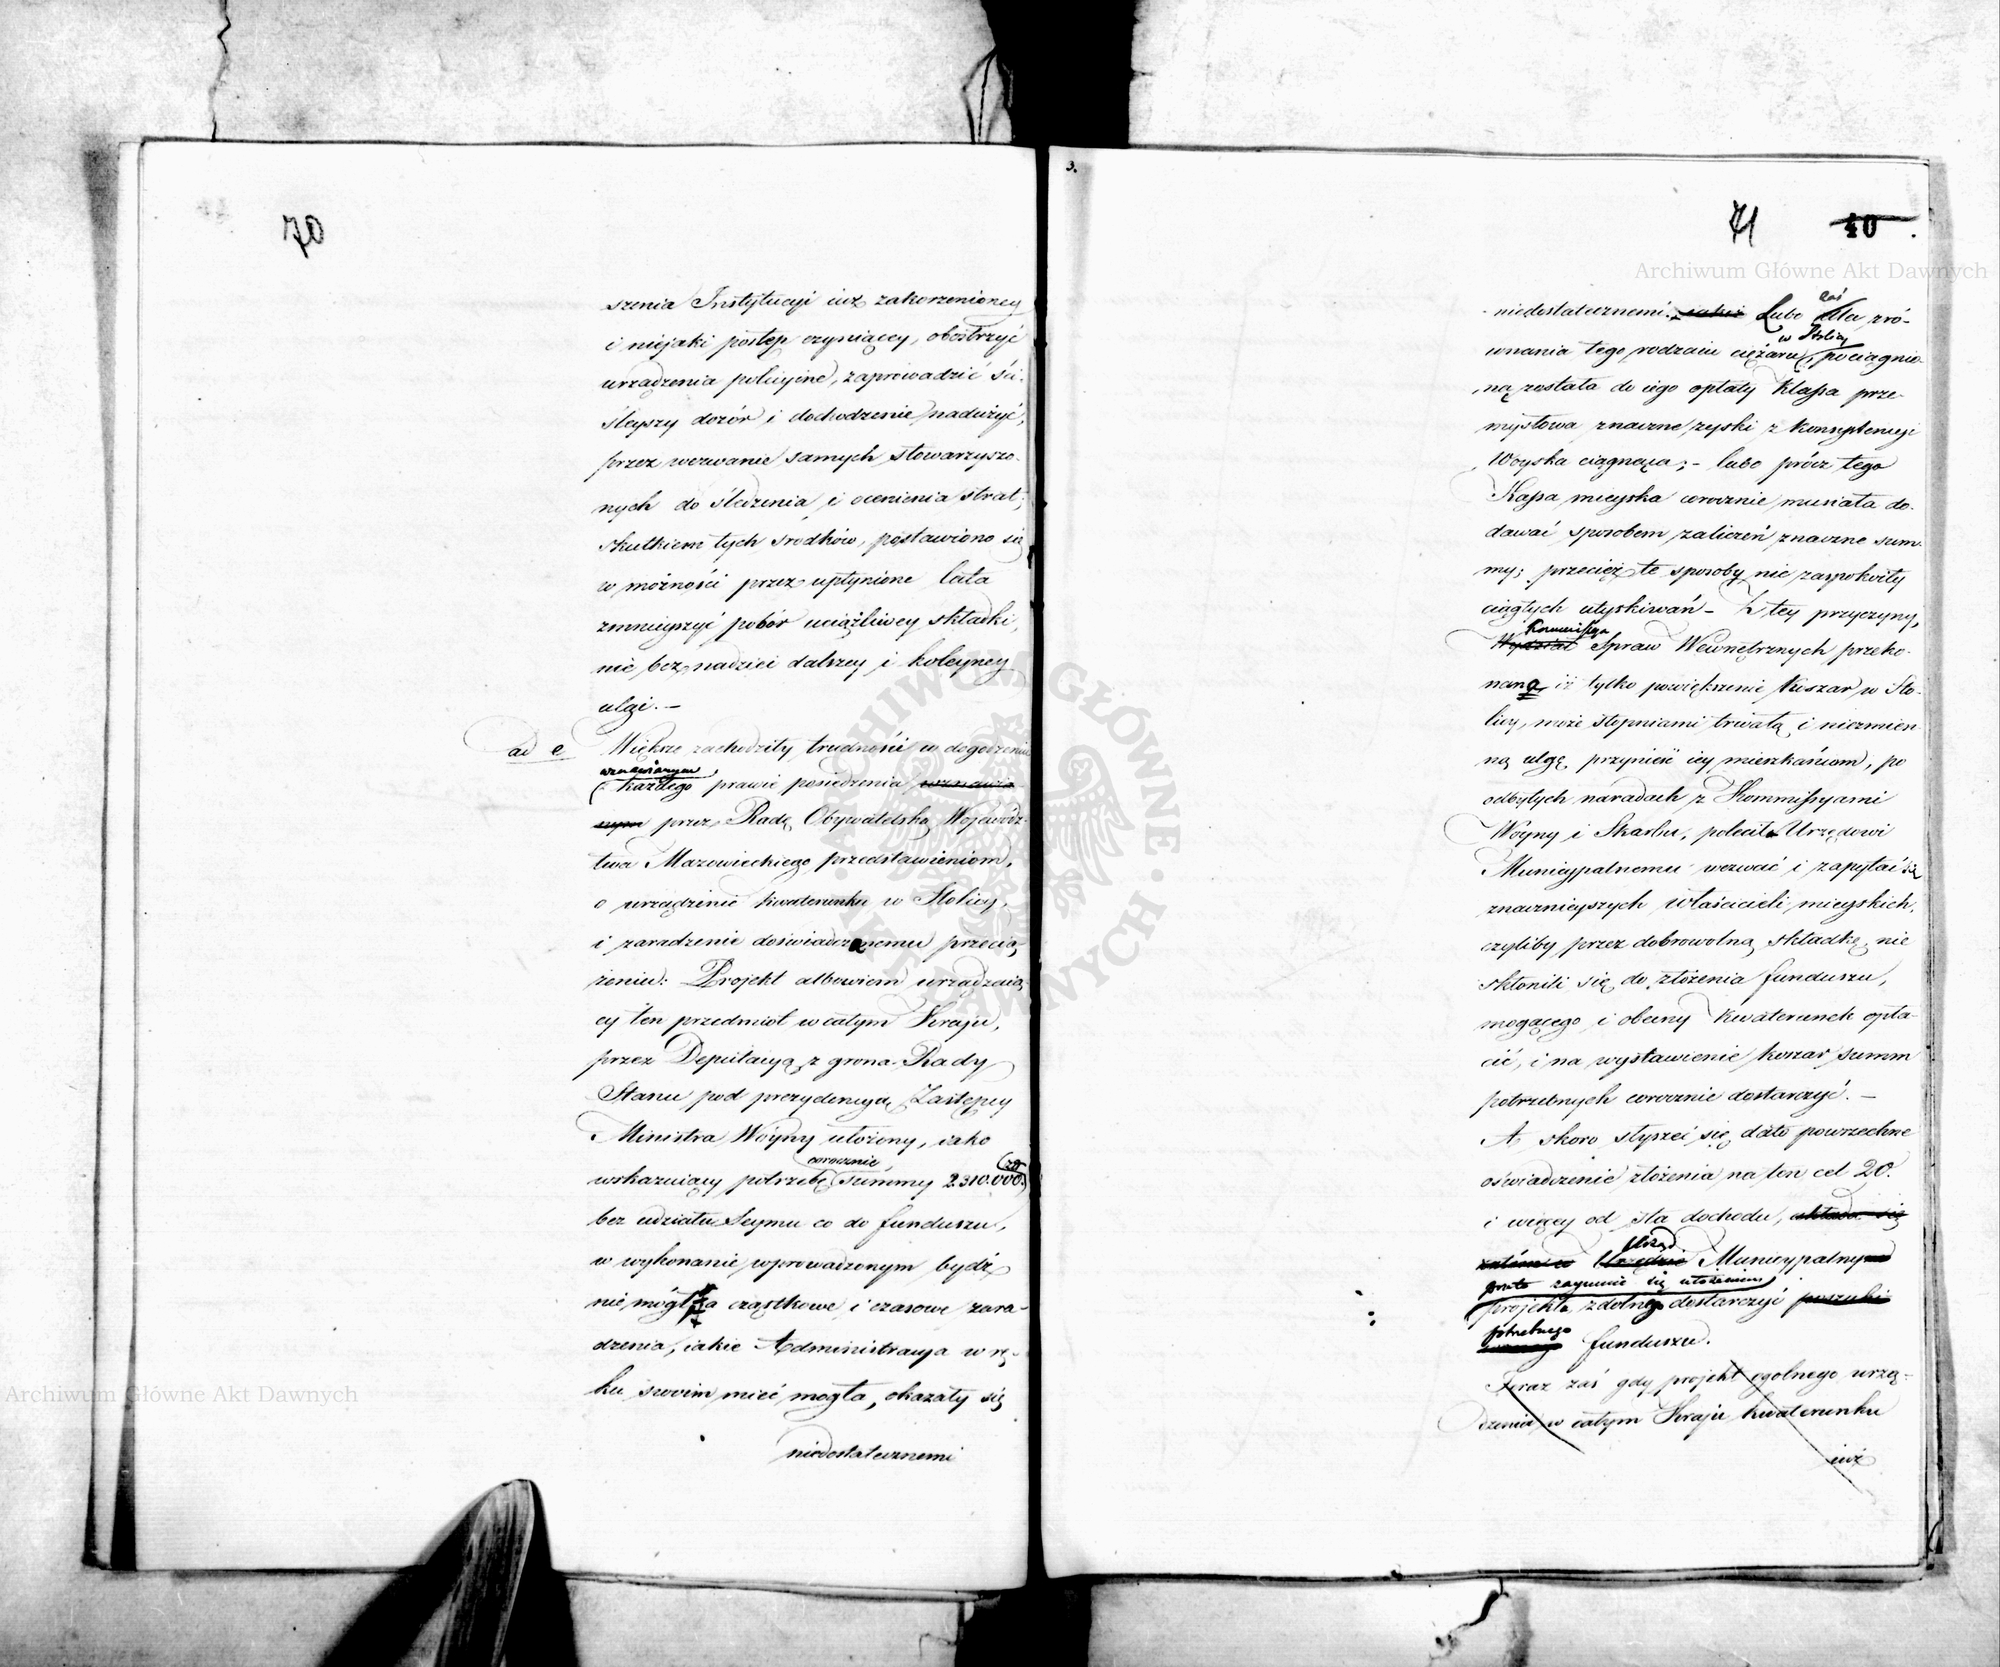 70
szenia Instytucyi iuż zakorzenioney
i niejaki postęp czyniącey, obostrzyć
urządzenia policyine, zaprowadzić ści-
śleyszy dozór i dochodzenie nadużyć,
przez wezwanie samych stowarzyszo-
nych do śledzenia i ocenienia strat;
skutkiem tych srodków, postawiono się
w możności przez upłynione lata
zmnieyszyć pobór uciążliwey składki,
nie bez nadziei dalszey i koleyney
ulgi. —
ad e Większe zachodziły trudności w dogodzeniu
wznawianym
każdego prawie posiedzenia wznawia
nym przez Radę Obywatelską Wojewódz-
twa Mazowieckiego przedstawieniom,
o urządzenie kwaterunku w Stolicy,
i zaradzenie doświadczonemu przecią-
żeniu: Projekt albowiem urządzaią-
cy ten przedmiot w całym Kraju,
przez Deputacyą z grona Rady
Stanu pod prezydencyą Zastępcy
Ministra Woyny ułożony, iako
corocznie
wskazuiący potrzebę summy 2.310.000. zł
bez udziału Seymu co do funduszu,
w wykonanie wprowadzonym bydź
nie mógł, a cząstkowe i czasowe zara-
dzenia, iakie Administracya w rę-
ku swoim mieć mogła, okazały się
niedostatecznemi
3.
71 40
niedostatecznemi. Lubo zaś dla zró-
w Stolicy
wnania tego rodzaiu ciężaru, pociągnio-
ną została do iego opłaty Klassa prze-
mysłowa znaczne zyski z konsumpcyi
Woyska ciągnąca; - lubo prócz tego
Kassa mieyska corocznie musiała do-
dawać sposobem zaliczeń znaczne sum-
my; przecież te sposoby nie zaspokoiły
ciągłych utyskiwań - Z tey przyczyny,
Kommissya
Wydział Spraw Wewnętrznych przeko-
nana iż tylko powiększenie Koszar w Sto-
licy, może stopniami trwałą i niezmien-
ną ulgę przynieść iey mieszkańcom, po
odbytych naradach z Kommissyami
Woyny i Skarbu, poleciła Urzędowi
Municypalnemu wezwać i zapytać się
znacznieyszych właścicieli mieyskich,
czyliby przez dobrowolną składkę nie
skłonili się do złożenia funduszu,
mogącego i obecny kwaterunek opła-
cić, i na wystawienie koszar summ
potrzebnych corocznie dostarczyć. —
A skoro słyszeć się dało powszechne
oświadczenie złożenia na ten cel 20.
i więcy od sta dochodu, układa się
Urząd
zatém w Urzędzie Municypalnym
zaymuie się ułożeniem
projektu zdolnego dostarczyć poszuki
potrzebnego
funduszu.
Teraz zaś gdy projekt ogolnego urzą-
dzenia w całym Kraju kwaterunku
iuż
Archiwum Główne Akt Dawnych
Archiwum Główne Akt Dawnych
ARCHIWUM GŁÓWNE AKT DAWNYCH